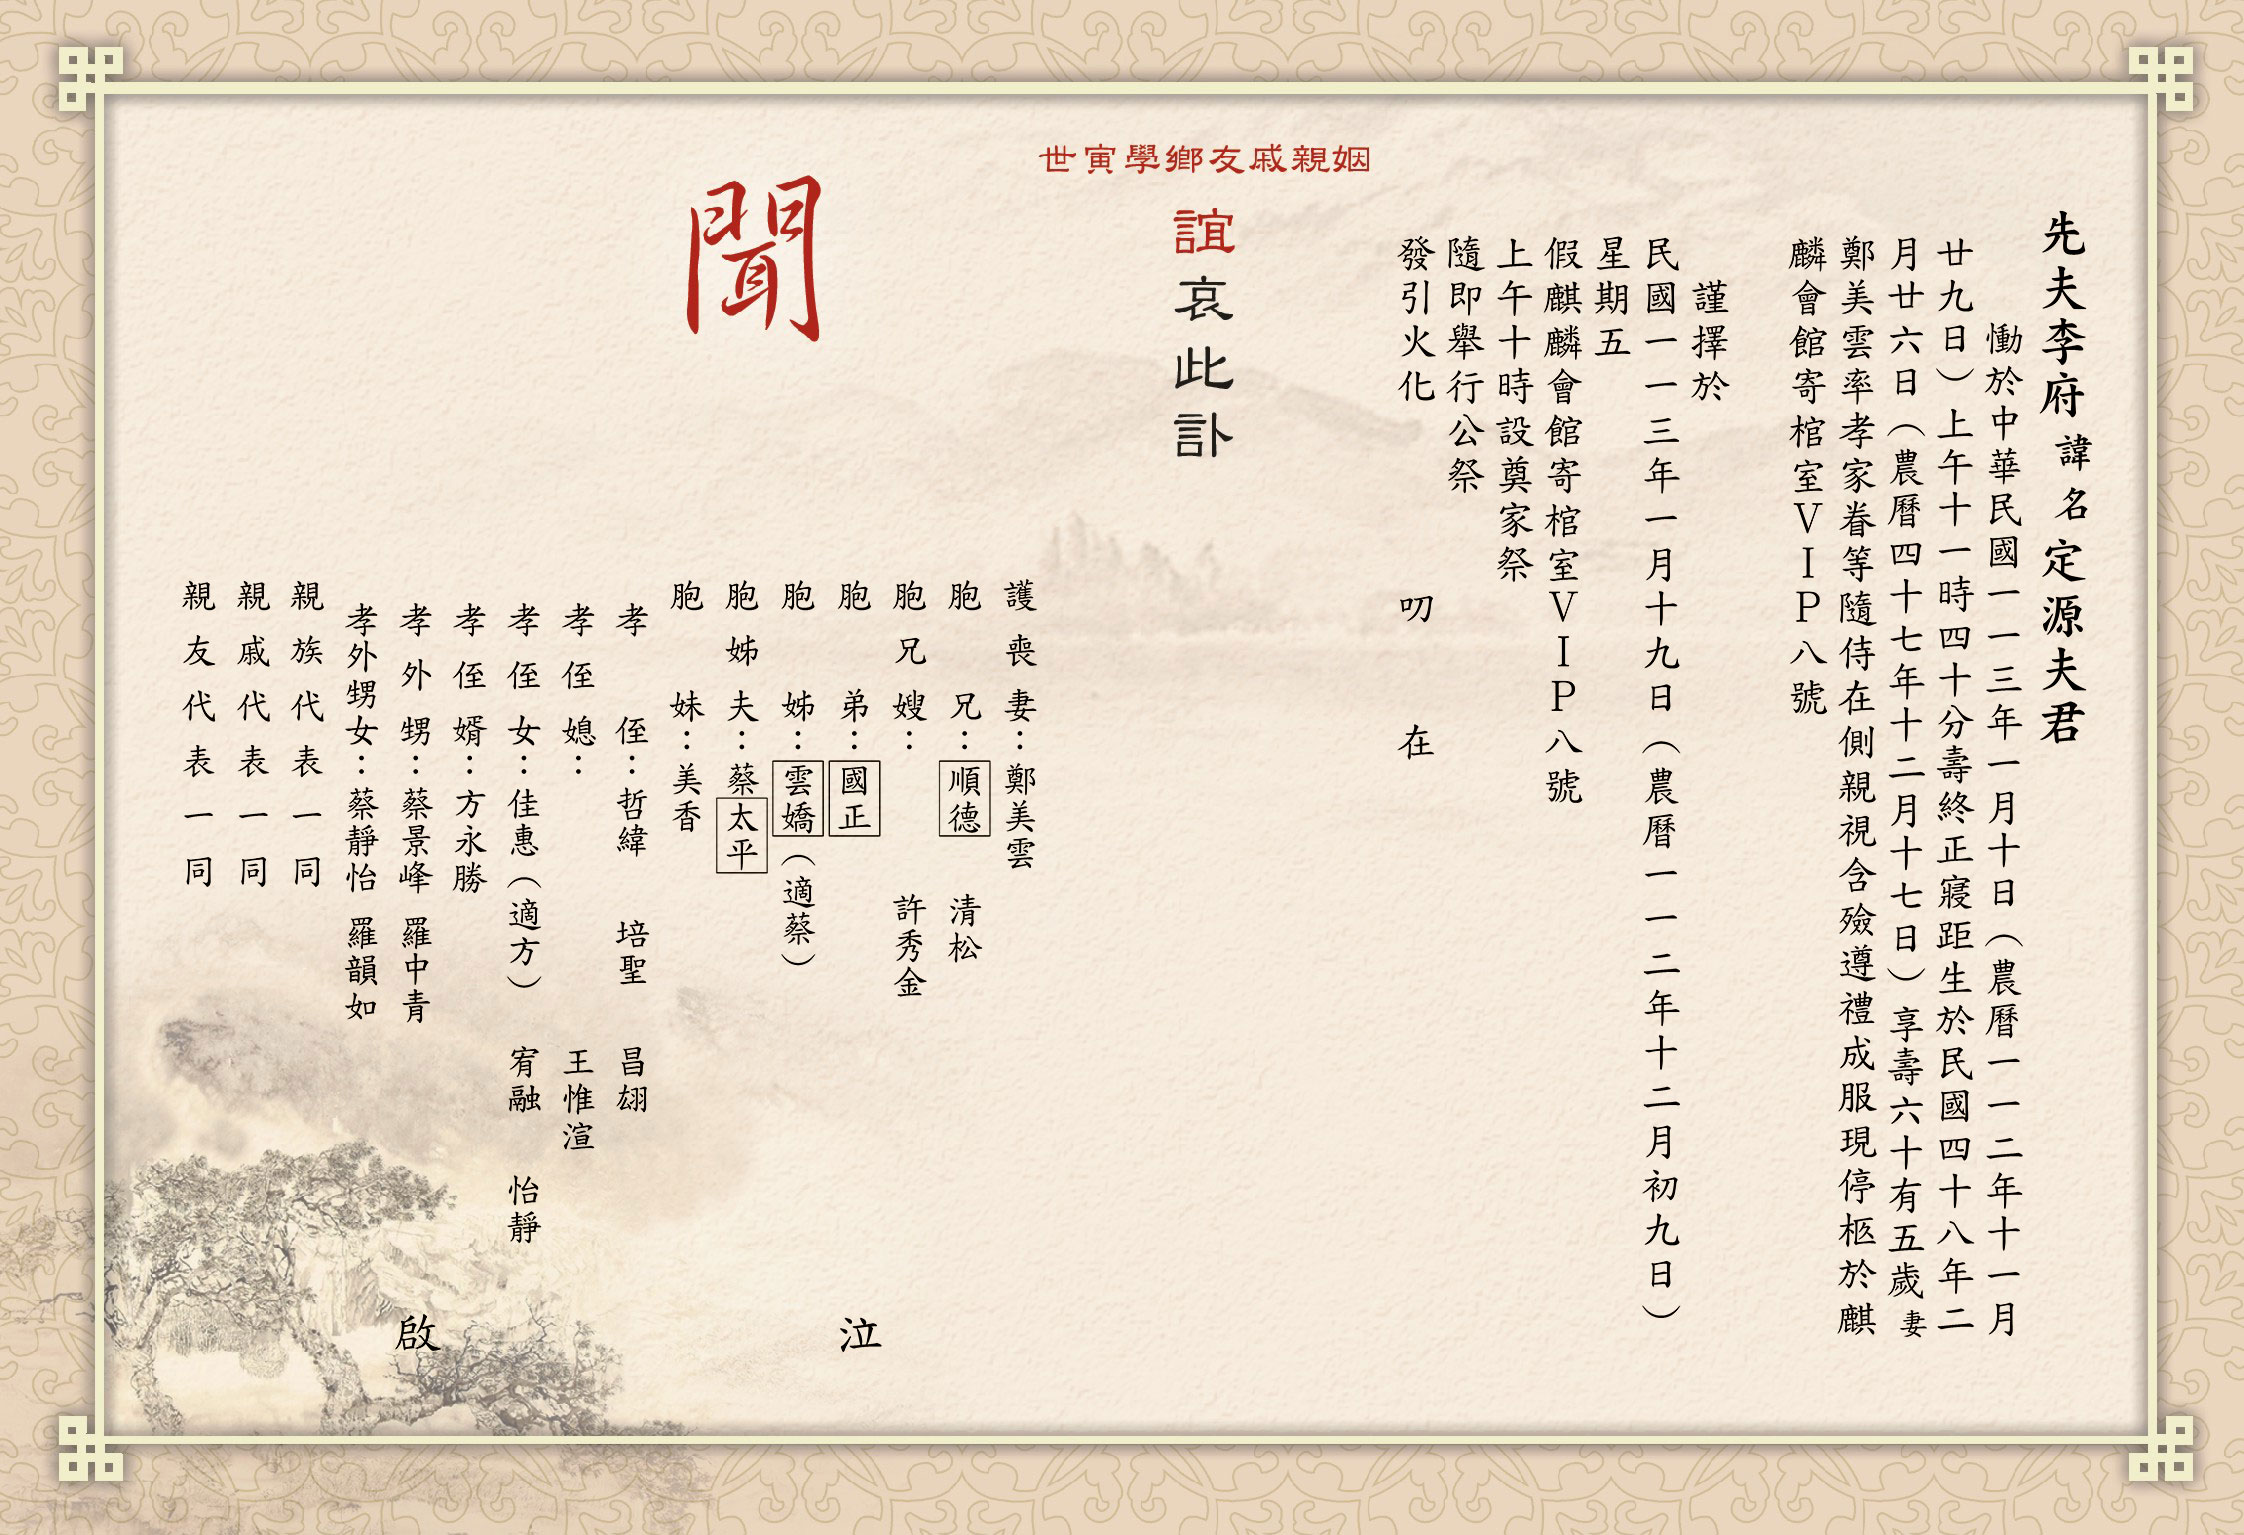 先夫李府諱名定源夫君
慟於中華民國一一三年一月十日（農曆一一二年十一月
廿九日）上午十一時四十分壽終正寢距生於民國四十八年二
月廿六日（農曆四十七年十二月十七日）享壽六十有五歲妻
鄭美雲率孝家眷等隨侍在側親視含殮遵禮成服現停柩於麒
麟會館寄棺室ＶＩＰ八號
謹擇於
民國一一三年一月十九日（農曆一一二年十二月初九日）
星期五
假麒麟會館寄棺室ＶＩＰ八號
上午十時設奠家祭
隨即舉行公祭
發引火化 叨 在
世寅學鄉友戚親姻
誼哀此訃
聞
護喪妻：鄭美雲
胞兄：順德 清松
胞兄嫂： 許秀金
胞弟：國正
胞姊：雲嬌（適蔡）
胞姊夫：蔡太平
胞妹：美香
泣
孝侄：哲緯 培聖 昌翃
孝侄媳： 王惟渲
孝侄女：佳惠（適方） 宥融 怡靜
孝侄婿：方永勝
孝外甥：蔡景峰 羅中青
孝外甥女：蔡靜怡 羅韻如
親族代表一同
親戚代表一同
親友代表一同
啟